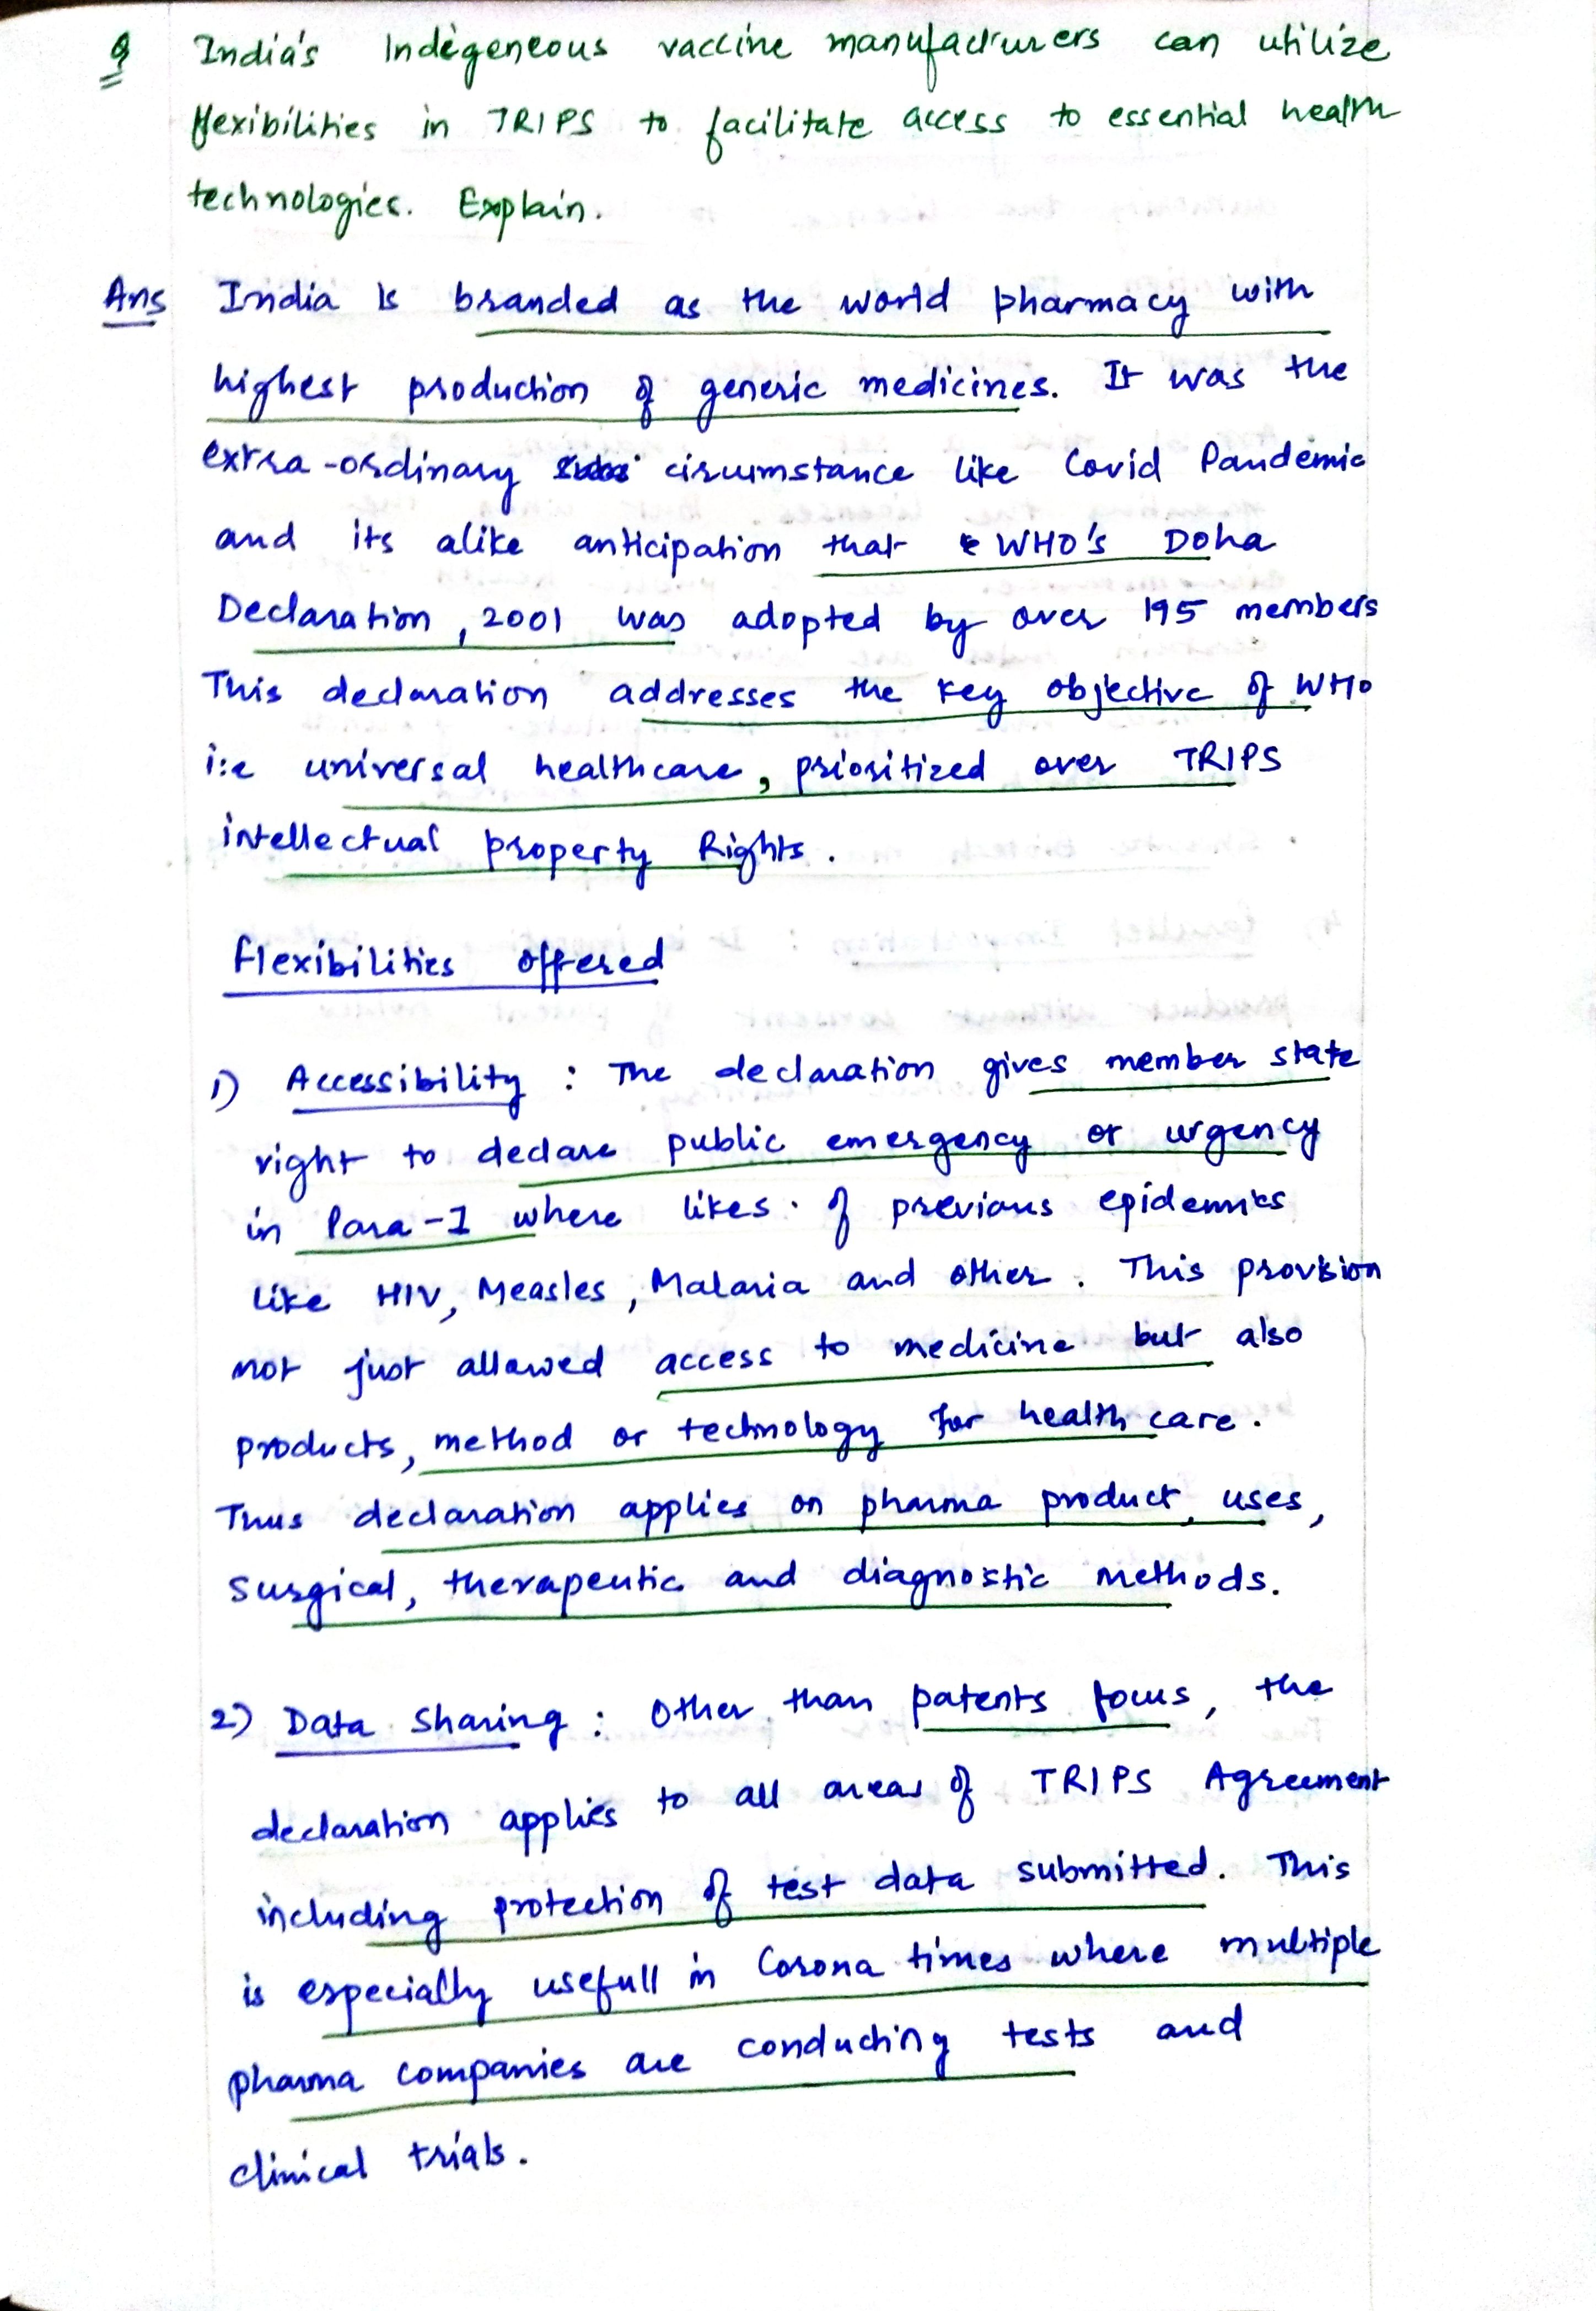 Q India's Indegeneous vaccine manufacturers can utilize
flexibilities in TRIPS to facilitate access to essential health
technologies. Explain.
Ans India is branded as the world pharmacy with
highest production of generic medicines. It was the
extra-ordinary circumstance like Covid Pandemic
and its alike anticipation that WHO's Doha
Declaration, 2001 was adopted by over 195 members
This declaration addresses the key objective of WHO
i.e universal healthcare, prioritized over TRIPS
intellectual property Rights.
Flexibilities offered
1) Accessibility : The declaration gives member state
right to declare public emergency or urgency
in Para-1 where likes of previous epidemics
like HIV, Measles, Malaria and other. This provision
not just allowed access to medicine but also
products, method or technology for health care.
Thus declaration applies on pharma product, uses,
surgical, therapeutic and diagnostic methods.
2) Data Sharing : Other than patents focus, the
declaration applies to all areas of TRIPS Agreement
including protection of test data submitted. This
is especially usefull in Corona times where multiple
pharma companies are conducting tests and
clinical trials.